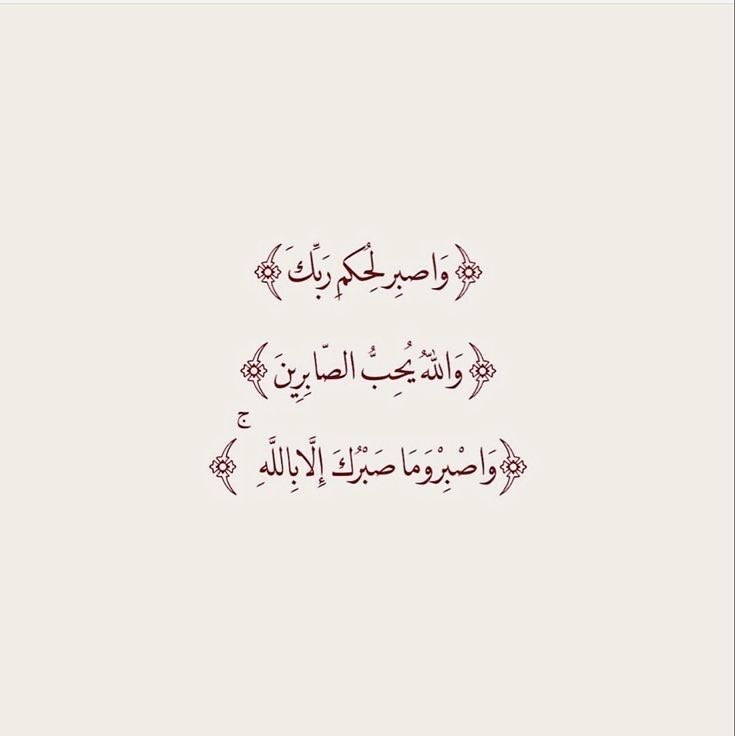 ﴿ وَاصبِر لِحُكمِ رَبِّكَ ﴾
﴿ وَاللّهُ يُحِبُّ الصّابِرِينَ ﴾
﴿ وَاصْبِرْ وَمَا صَبْرُكَ إِلَّا بِاللَّهِ ۚ ﴾